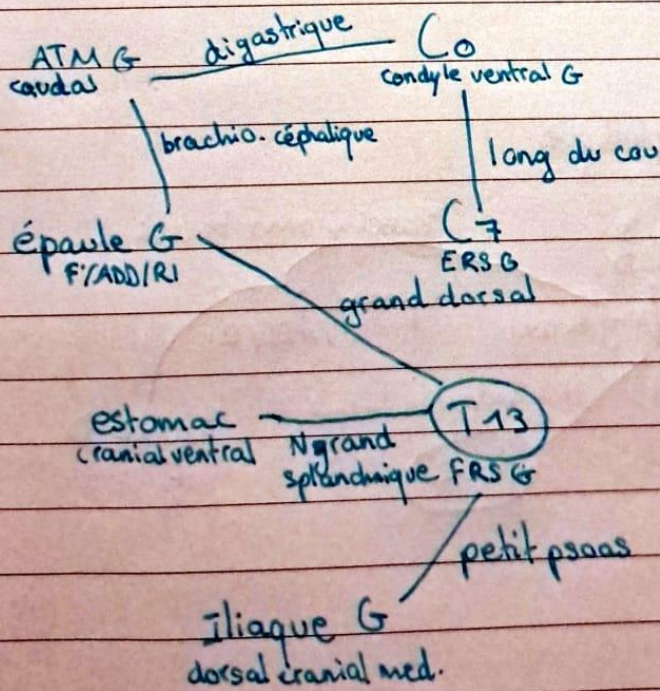 ATM G digastrique C0
caudal condyle ventral G
brachio-céphalique
long du cou
épaule G C7
F°/ADD/RI ERS G
grand dorsal
estomac T13
cranial ventral N grand
splanchnique FRS G
petit psoas
Iliaque G
dorsal cranial med.